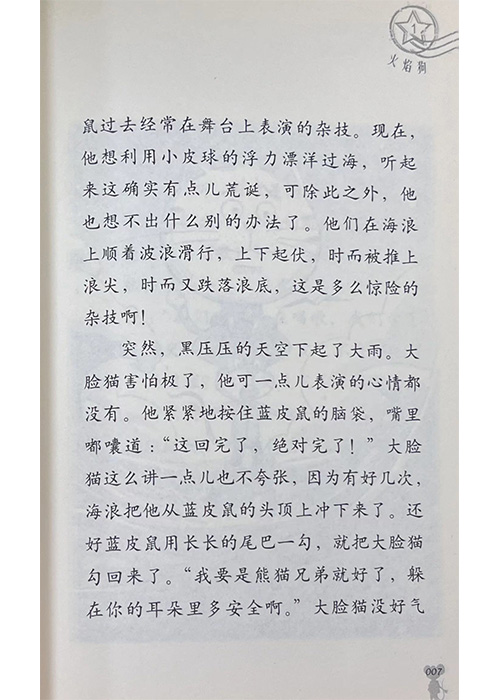 1
火焰狗
鼠过去经常在舞台上表演的杂技。现在，
他想利用小皮球的浮力漂洋过海，听起
来这确实有点儿荒诞，可除此之外，他
也想不出什么别的办法了。他们在海浪
上顺着波浪滑行，上下起伏，时而被推上
浪尖，时而又跌落浪底，这是多么惊险的
杂技啊！
突然，黑压压的天空下起了大雨。大
脸猫害怕极了，他可一点儿表演的心情都
没有。他紧紧地按住蓝皮鼠的脑袋，嘴里
嘟囔道：“这回完了，绝对完了！”大脸
猫这么讲一点儿也不夸张，因为有好几次，
海浪把他从蓝皮鼠的头顶上冲下来了。还
好蓝皮鼠用长长的尾巴一勾，就把大脸猫
勾回来了。“我要是熊猫兄弟就好了，躲
在你的耳朵里多安全啊。”大脸猫没好气
007